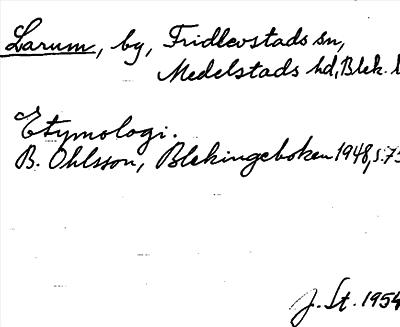 Larum, by, Fridlevstads sn,
Medelstads hd, Blek. l
Etymologi.
B. Ohlsson, Blekingeboken 1948, s. 73
J. St. 1954